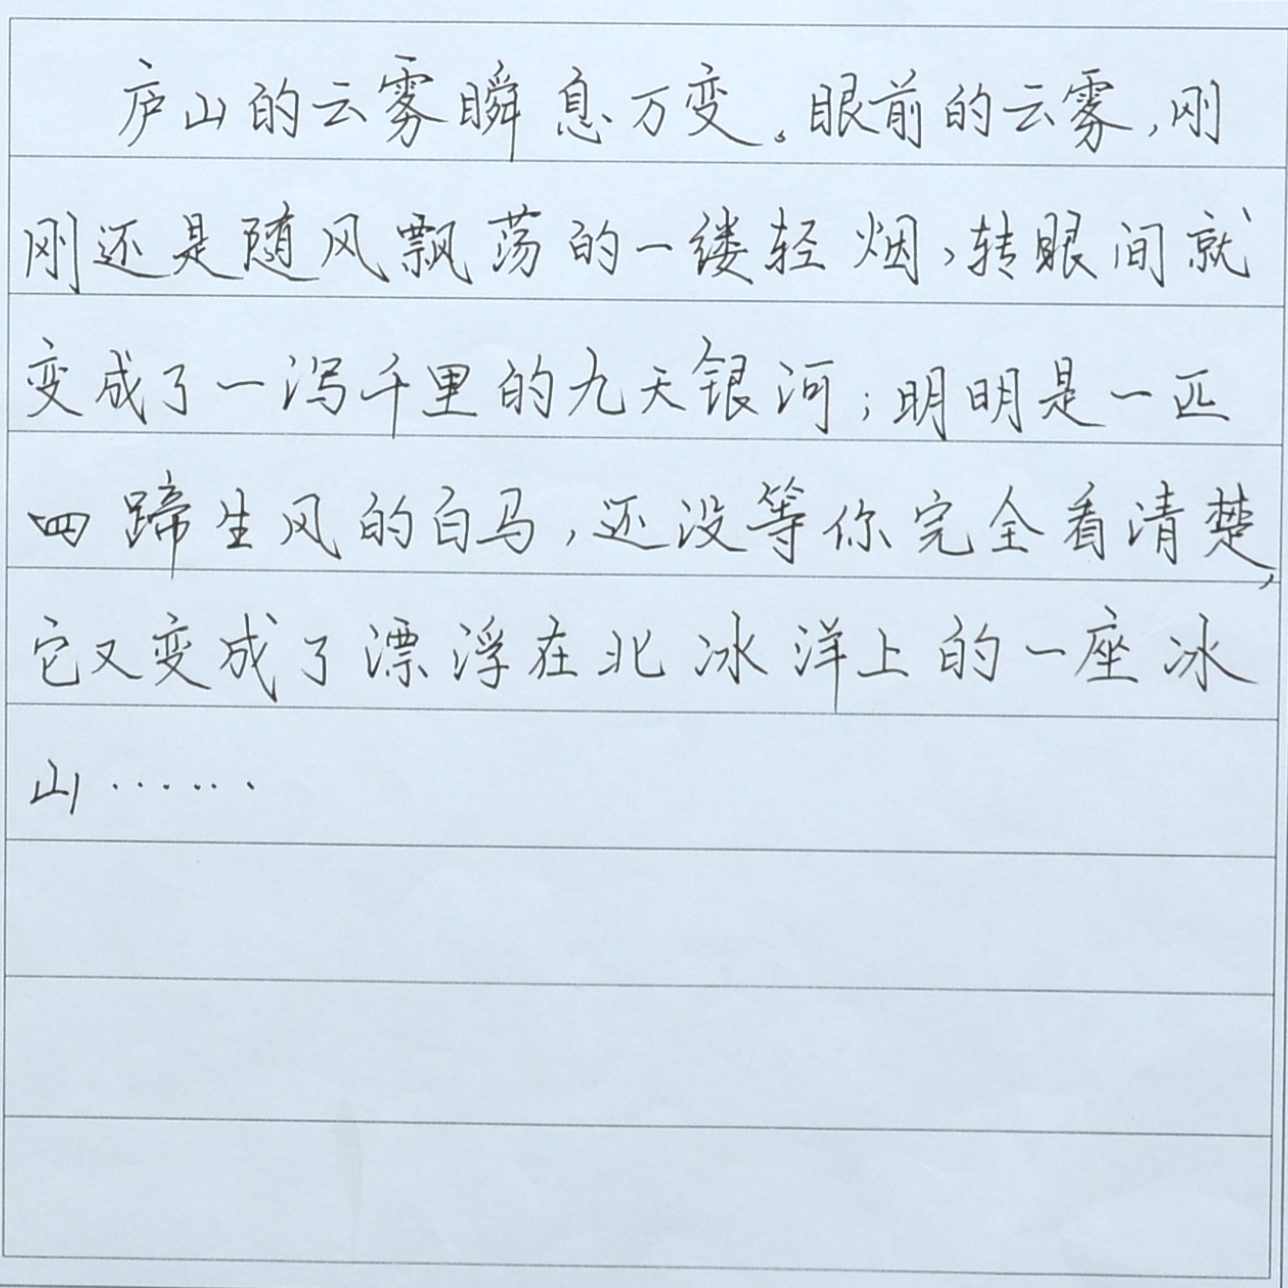 庐山的云雾瞬息万变。眼前的云雾,刚
刚还是随风飘荡的一缕轻烟,转眼间就
变成了一泻千里的九天银河;明明是一匹
四蹄生风的白马,还没等你完全看清楚,
它又变成了漂浮在北冰洋上的一座冰
山……